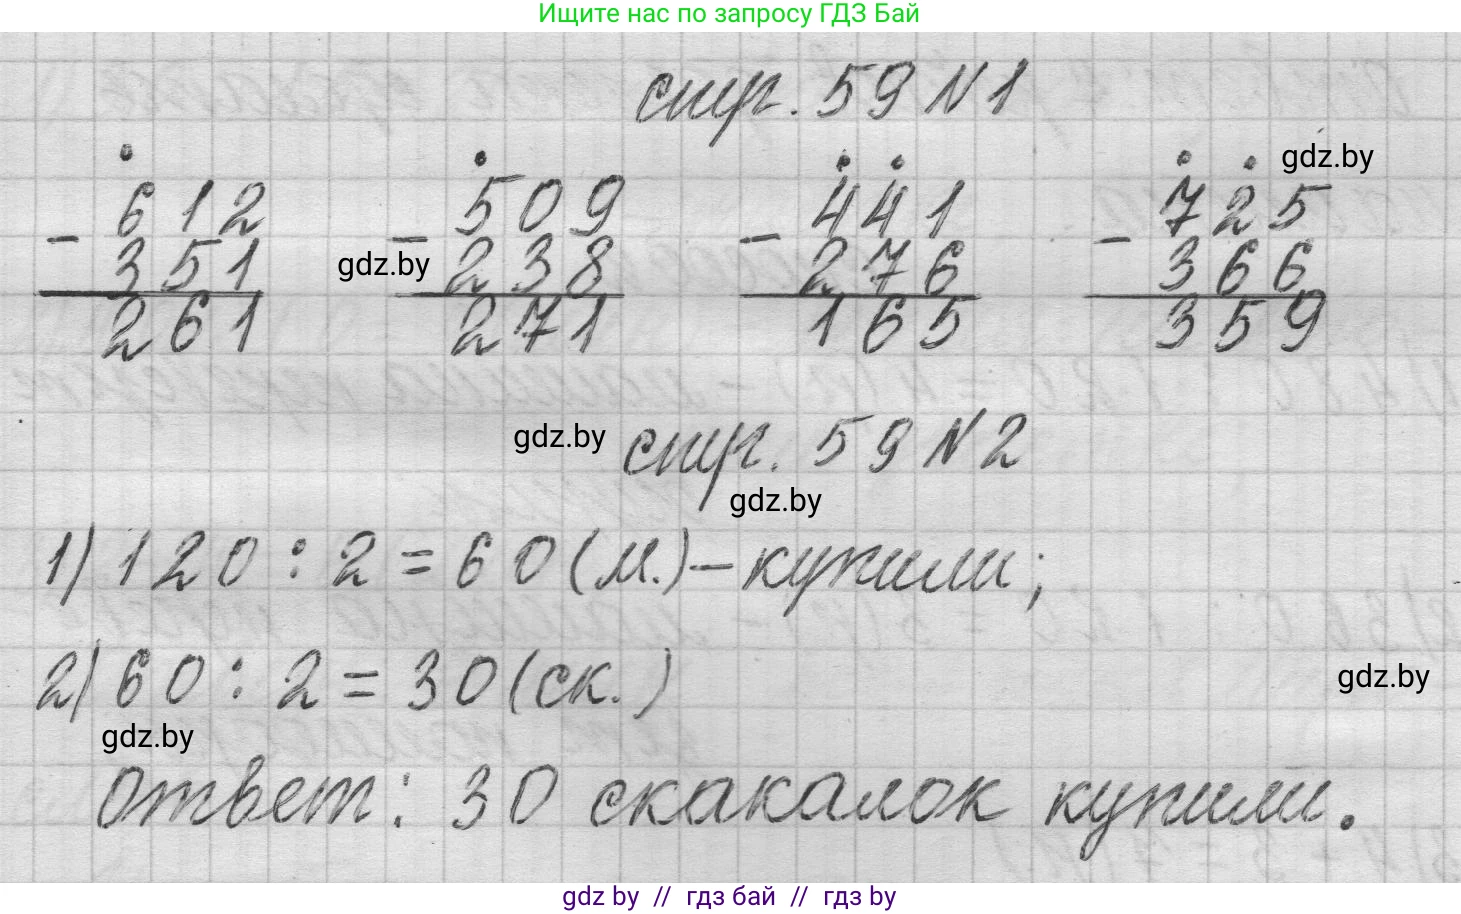 Ищите нас по запросу ГДЗ Бай
стр. 59 N1
gdz.by
612 509 441 725
- - - -
351 238 276 366
gdz.by
261 271 165 359
gdz.by
стр. 59 N2
gdz.by
1) 120 : 2 = 60 (м.) – купили;
2) 60 : 2 = 30 (ск.)
gdz.by
gdz.by
ответ: 30 скакалок купили.
gdz by // гдз бай // гдз by